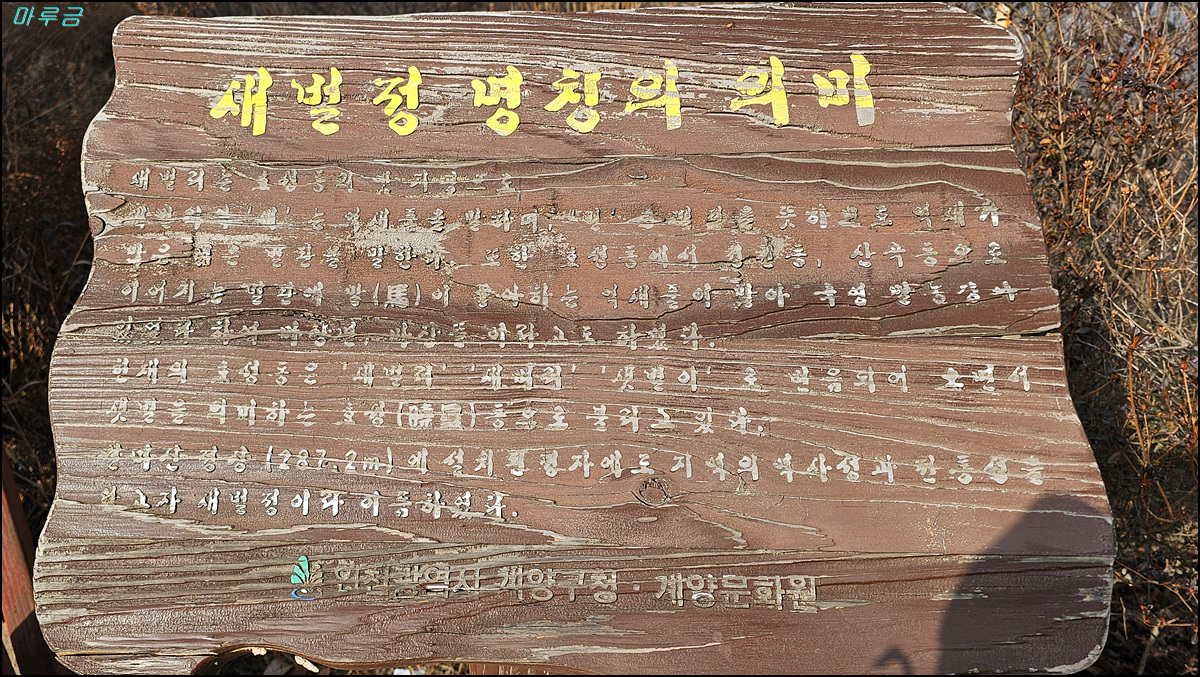 마루금
새벌정 명칭의 의미
새벌리는 효성동의 옛 지명으로
'새'는 억새풀을 말하며, '벌' 은 벌판을 뜻하므로 억새가
많은 넓은 벌판을 말한다. 또한 효성동에서 청천동, 산곡동으로
이어지는 벌판에 말(馬)이 좋아하는 억새풀이 많아 국영 말농장
하였다.
현재의 효성동은 '새벌리' '새벼리' '샛별이' 로 변음되어
샛별을 의미하는 효성(曉星)동으로 불리고 있다.
천마산 정상 (287.2m)에 설치된 정자에도 지역의 역사성과 전통성을
새벌정이라 이름하였다.
인천광역시 계양구청 · 계양문화원